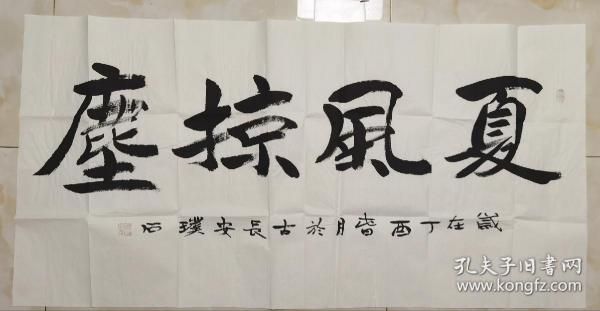 夏風掠塵
歲在丁酉春月於古長安璞石
孔夫子旧書网
www.kongfz.com